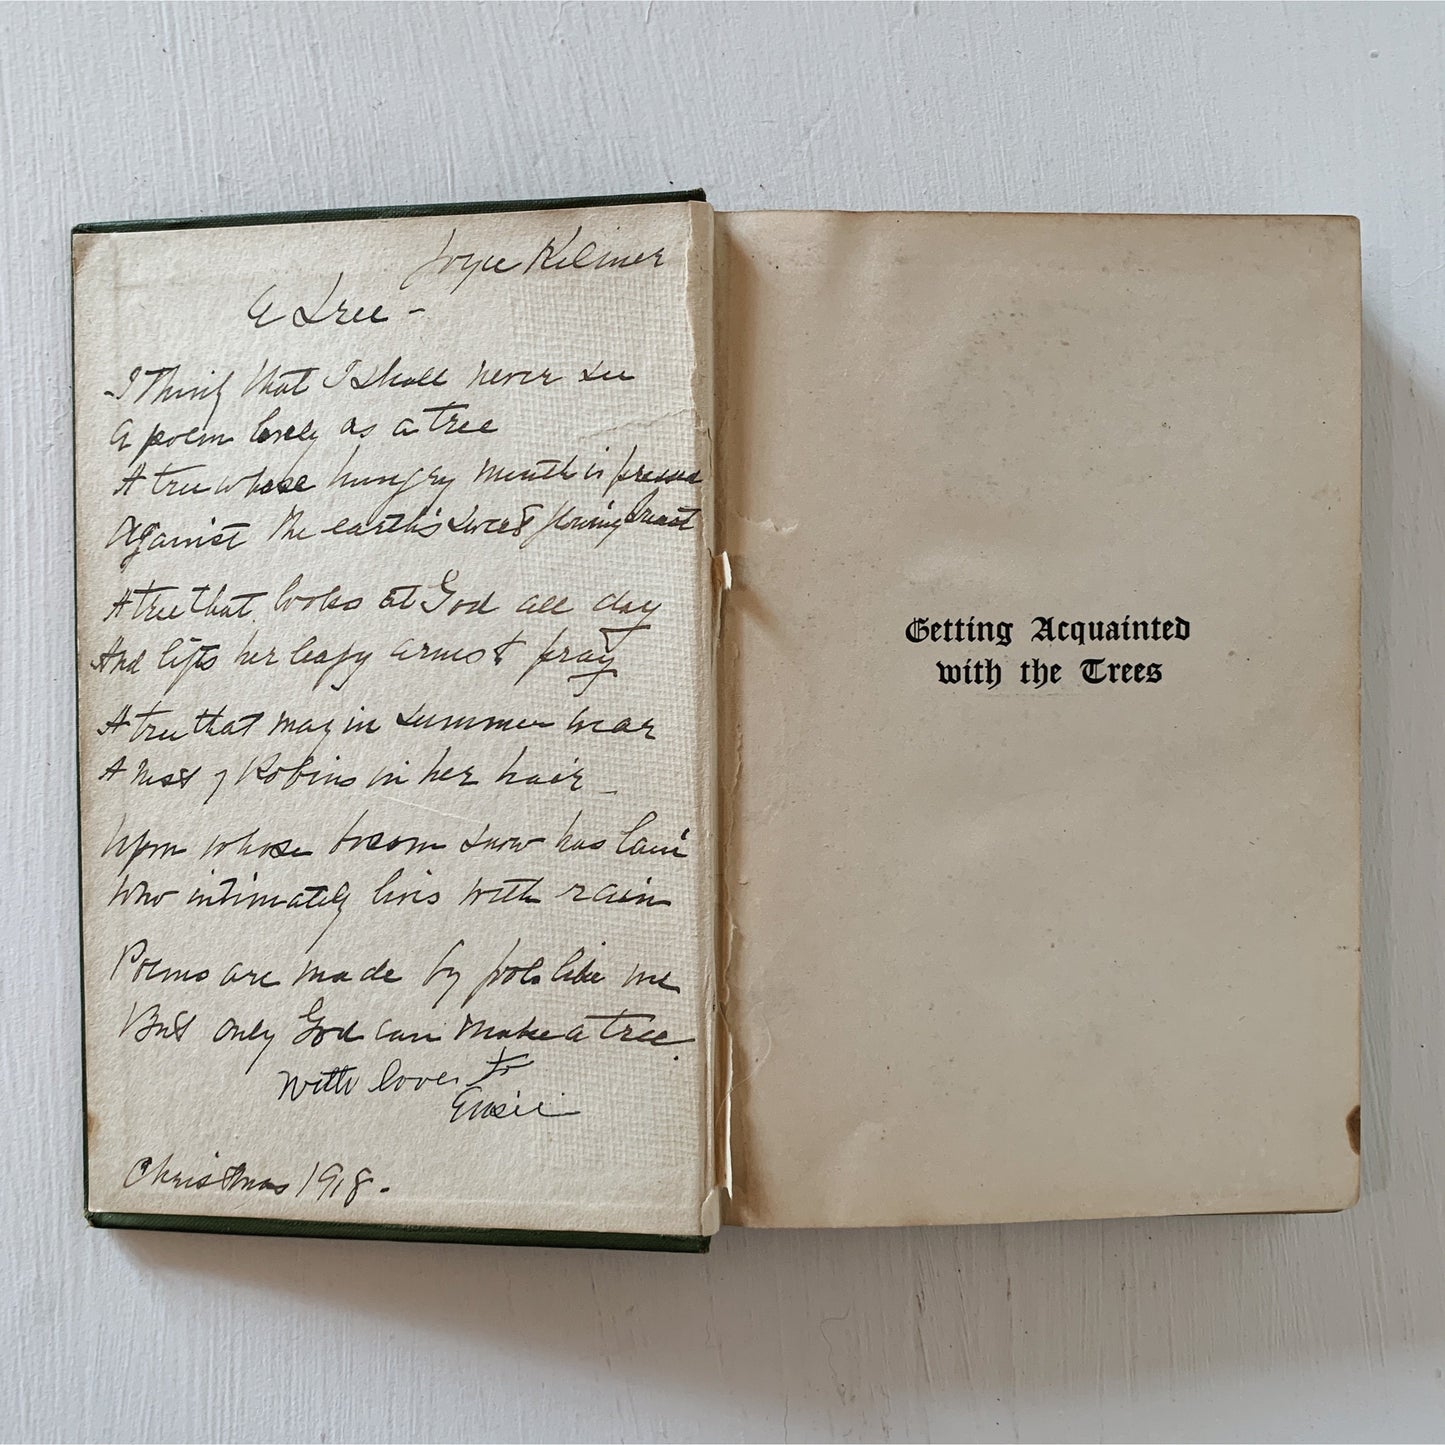 Joyce Kilmer
A Tree -
I Think that I shall never see
A poem lovely as a tree
A tree whose hungry mouth is pressed
Against the earth's sweet flowing breast
A tree that looks at God all day
And lifts her leafy arms & pray
A tree that may in summer wear
A nest of Robins in her hair
Upon whose bosom snow has lain
Who intimately lives with rain
Poems are made by fools like me
But only God can make a tree.
With love to
Christmas 1918.
Getting Acquainted
with the Trees